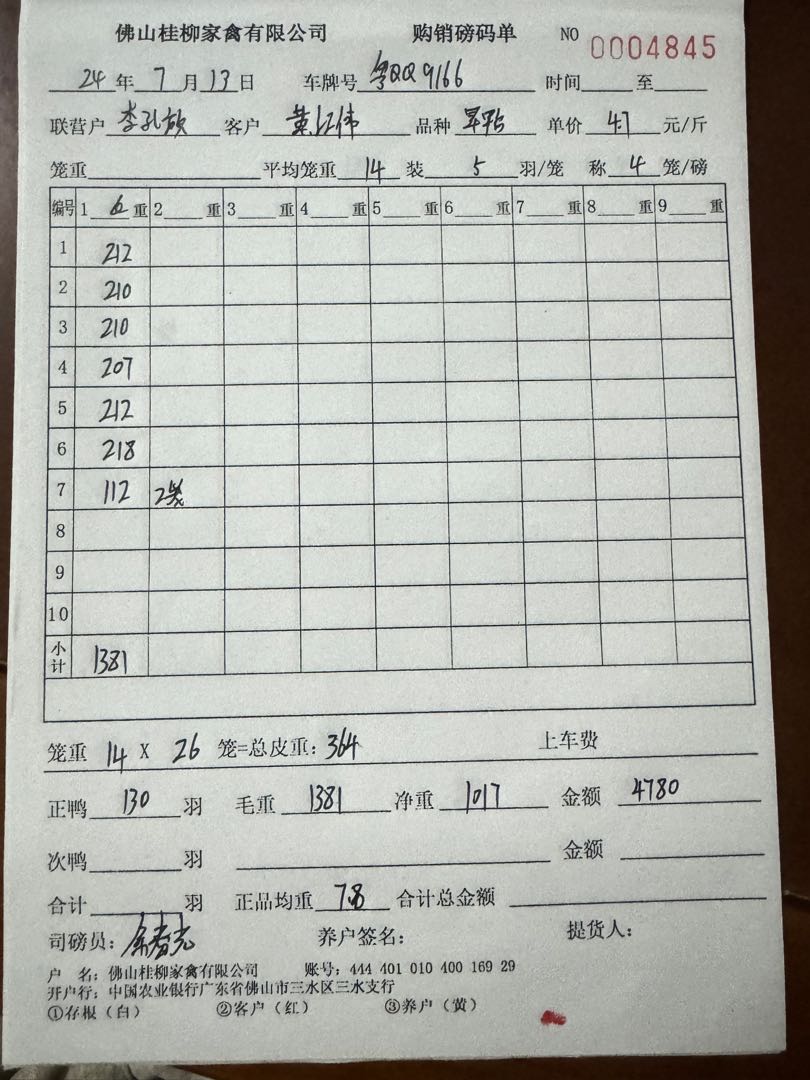 佛山桂柳家禽有限公司 购销磅码单 NO 0004845
24 年 7 月 13 日 车牌号 粤QQ9166 时间 至
联营户 李孔 客户 黄江伟 品种 单价 4.7 元/斤
笼重 平均笼重 14 装 5 羽/笼 称 4 笼/磅
编号 1 重 2 重 3 重 4 重 5 重 6 重 7 重 8 重 9 重
1 212
2 210
3 210
4 207
5 212
6 218
7 112 2笼
8
9
10
小计 1381
笼重 14 X 26 笼=总皮重: 364 上车费
正鸭 130 羽 毛重 1381 净重 1017 金额 4780
次鸭 羽 金额
合计 羽 正品均重 7.8 合计总金额
司磅员: 养户签名: 提货人:
户 名: 佛山桂柳家禽有限公司 账号: 444 401 010 400 169 29
开户行: 中国农业银行广东省佛山市三水区三水支行
①存根（白） ②客户（红） ③养户（黄）